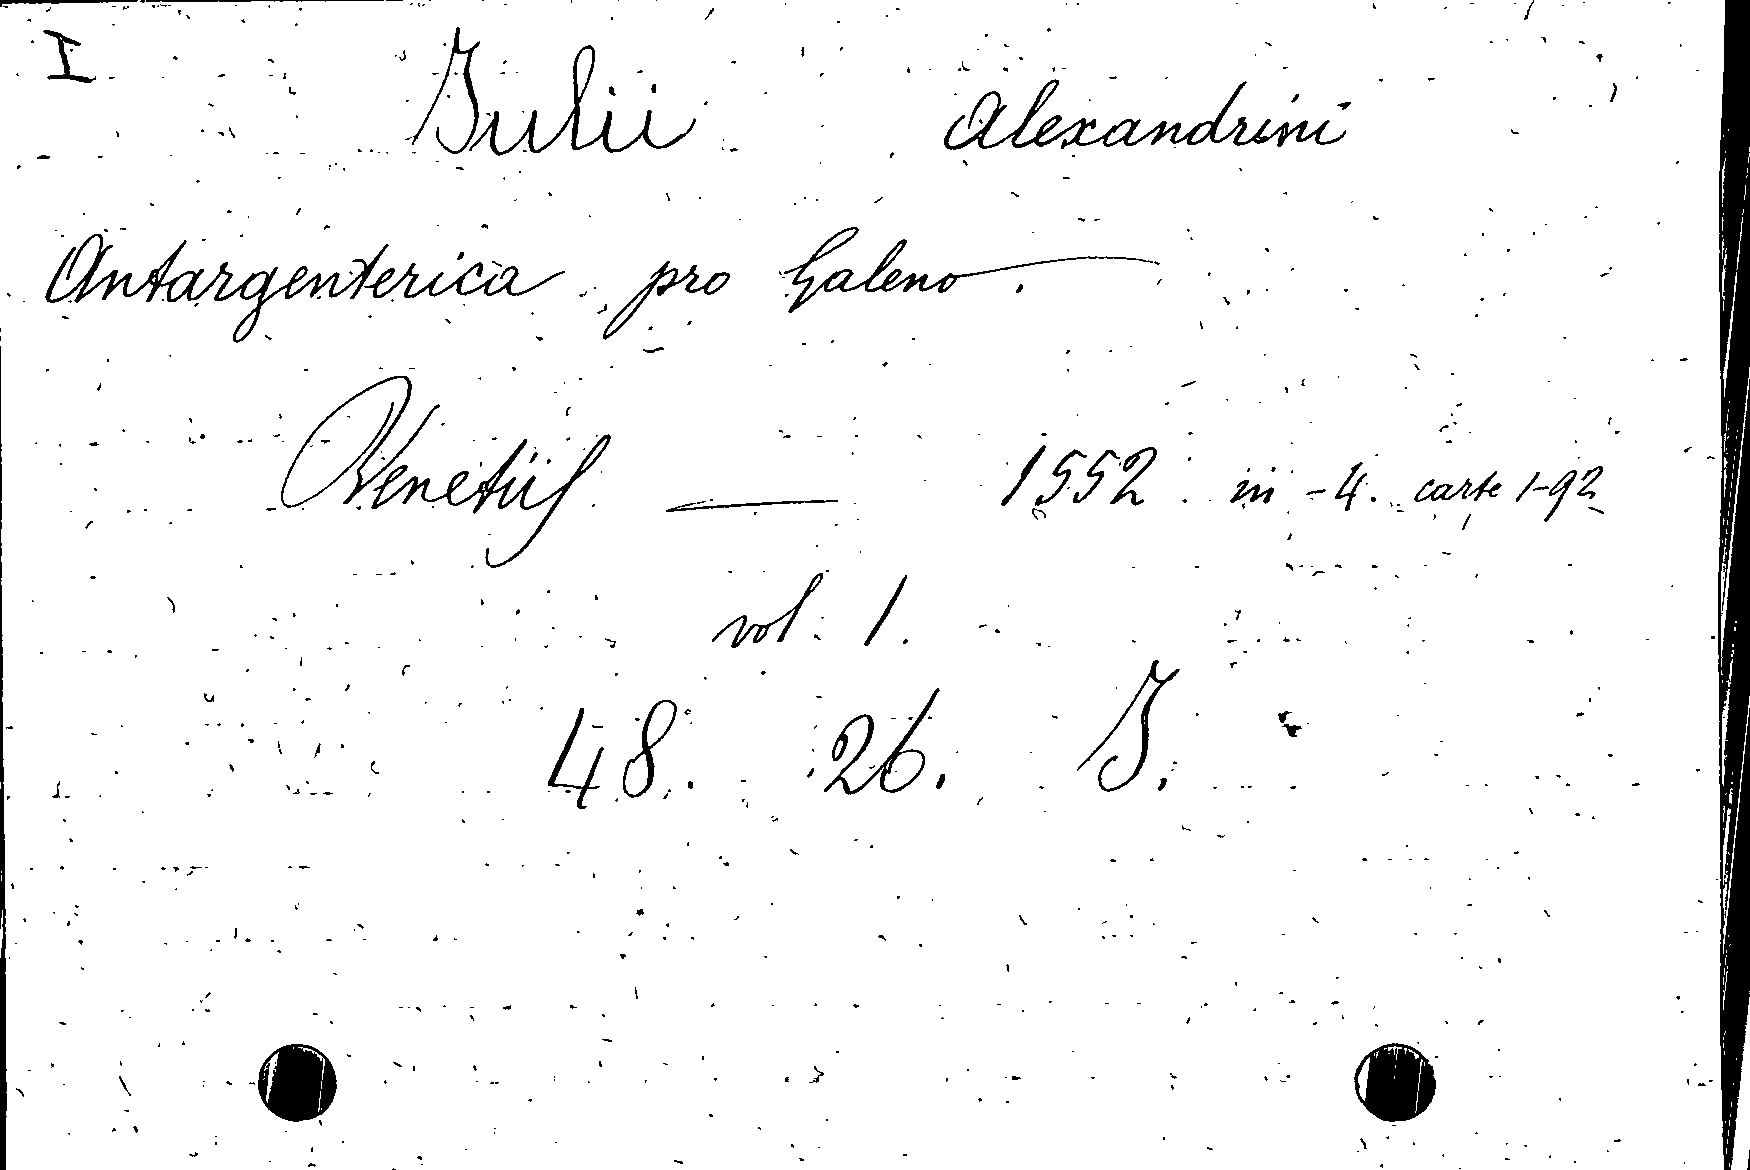 I
Julii Alexandrini
Antargenterica pro Galeno.
Venetiis — 1552. in-4. carte 1-92
vol. 1.
48. 26. J.